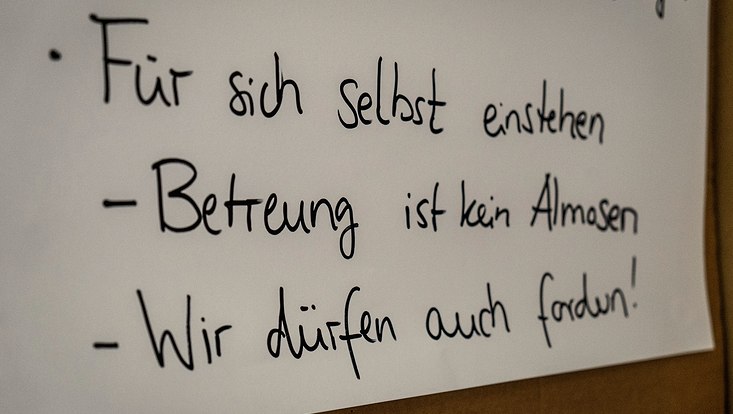 • Für sich selbst einstehen
- Betreuung ist kein Almosen
- Wir dürfen auch fordern!